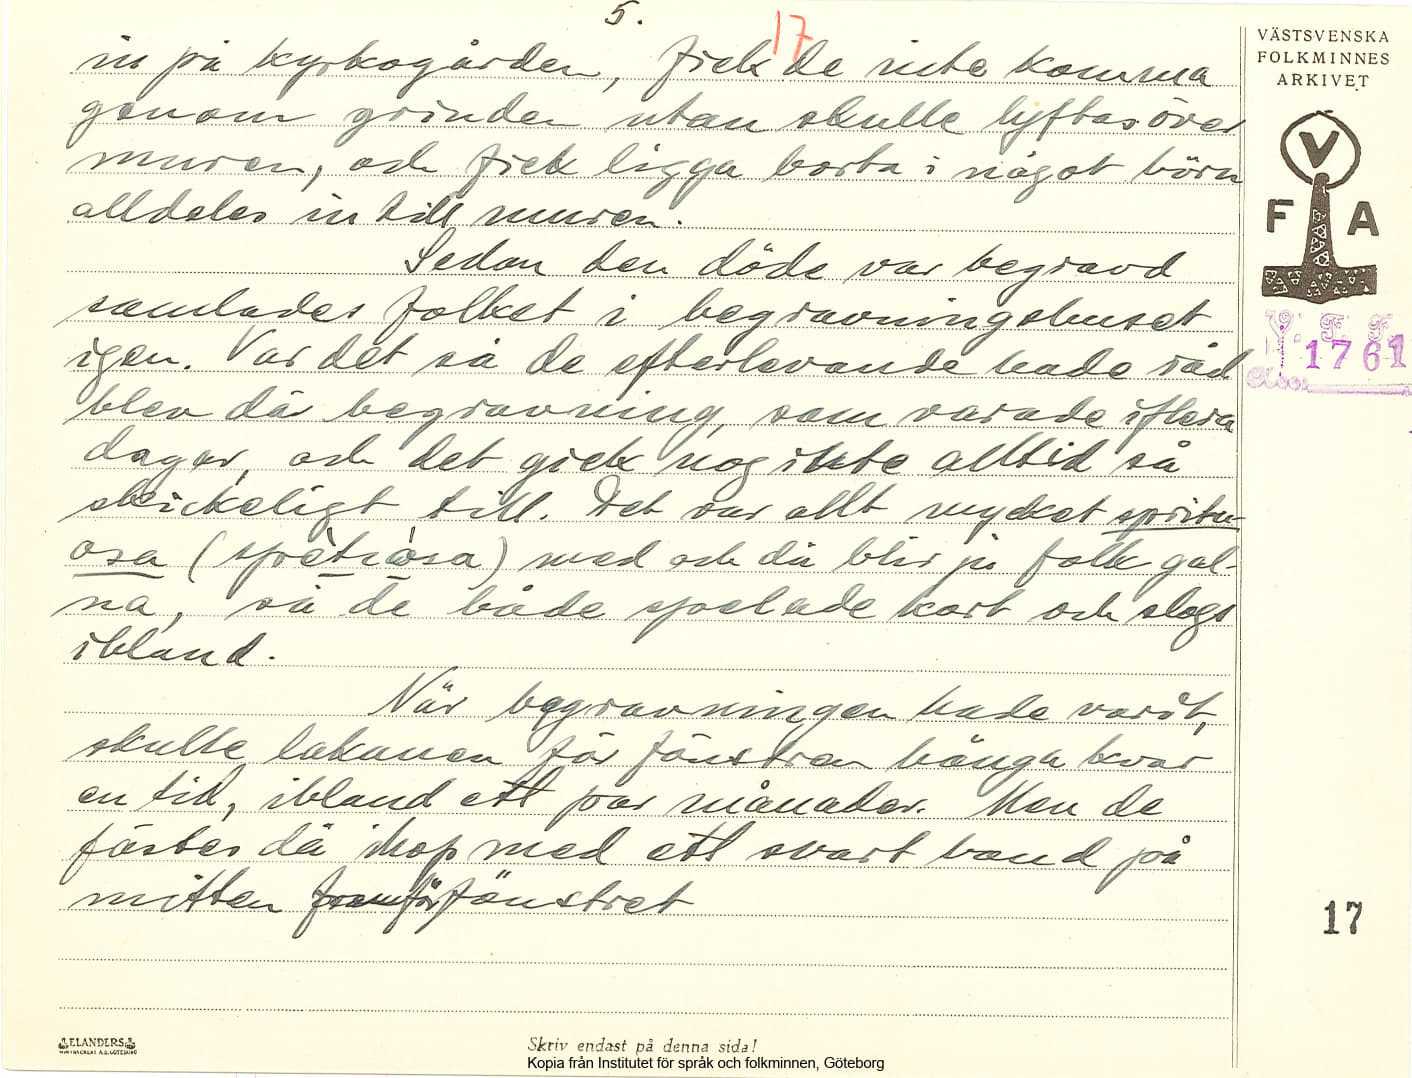 5.
17
in på kyrkogården, fick de inte komma
genom grinden utan skulle lyftas över
muren, och fick ligga borta i något hörn
alldeles in till muren.
Sedan den döde var begravd
samlades folket i begravningshuset
igen. Var det så de efterlevande hade råd
blev där begravning, som varade i flera
dagar, och det gick nog inte alltid så
skickeligt till. Det var allt mycket spritu-
osa (sprètiósa) med och då blir ju folk gal-
na, så de både spelade kort och slogs
ibland.
När begravningen hade varit,
skulle lakanen för fönstren hänga kvar
en tid, ibland ett par månader. Men de
fästes då ihop med ett svart band på
mitten framför fönstret
VÄSTSVENSKA
FOLKMINNES
ARKIVET
V
F A
V. F. F.
1761
17
ELANDERS
Skriv endast på denna sida!
Kopia från Institutet för språk och folkminnen, Göteborg